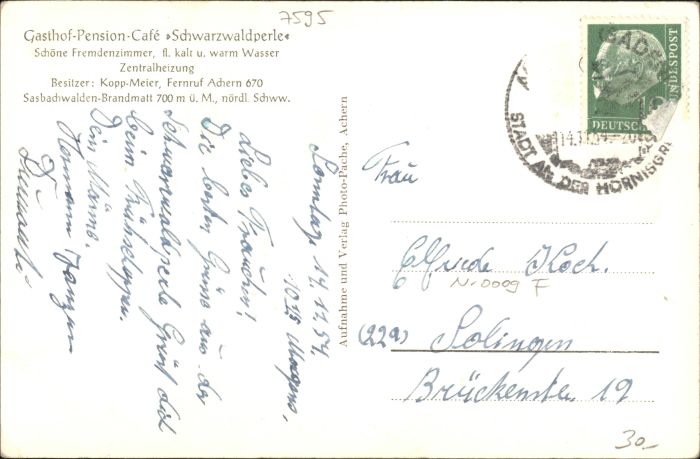 7595
Gasthof-Pension-Café »Schwarzwaldperle«
Schöne Fremdenzimmer, fl. kalt u. warm Wasser
Zentralheizung
Besitzer: Kopp-Meier, Fernruf Achern 670
Sasbachwalden-Brandmatt 700 m ü. M., nördl. Schww.
Sonntag 14.11.54.
10 25 Morgens.
Liebes Frauchen!
Die besten Grüße aus der
Schwarzwaldperle Grüßt dich
beim Frühschoppen.
Dein Männe.
Hermann
Aufnahme und Verlag Photo-Pache, Achern
BUNDESPOST
DEUTSCH
14.11.54
STADT AN DER HORNISGRI
Frau
Elfriede Koch.
N-0009 F
(22a) Solingen
Brückenstr 19
30.-